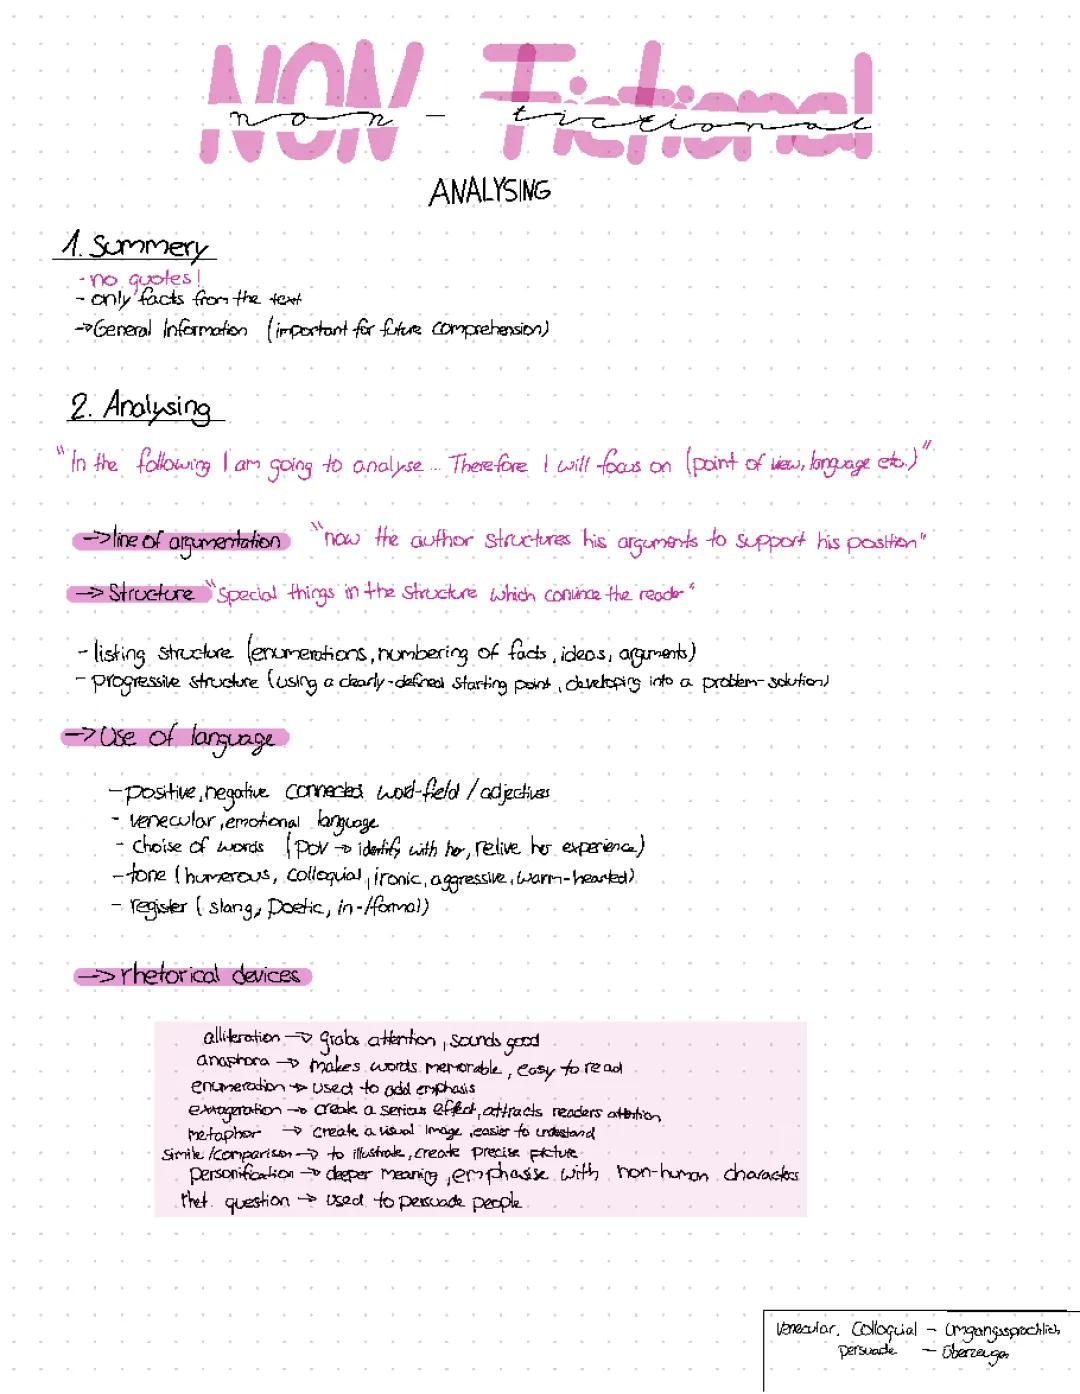 NON Fictional
non - fictional
ANALYSING
1. Summery
- no quotes!
- only facts from the text
→ General Information (important for future comprehension)
2. Analysing
"In the following I am going to analyse ... Therefore I will focus on (point of view, language etc.)"
-> line of argumentation "how the author structures his arguments to support his position"
-> Structure "Special things in the structure which convince the reader"
- listing structure (enumerations, numbering of facts, ideas, arguments)
- progressive structure (using a clearly-defined starting point, developing into a problem-solution)
-> Use of language
- positive, negative connected word-field / adjectives
- venecular, emotional language
- choise of words (POV → identify with her, relive her experience)
- tone (humerous, colloquial, ironic, aggressive, warm-hearted)
- register (slang, poetic, in-/formal)
-> rhetorical devices
alliteration → grabs attention, sounds good
anaphora → makes words memorable, easy to read
enumeration → used to add emphasis
exxageration → create a serious effect, attracts readers attention
metaphor → create a visual image, easier to understand
simile/comparison → to illustrate, create precise picture
personification → deeper meaning, emphasise with non-human characters
rhet. question → used to persuade people
Venecular, Colloquial - Umgangssprachlich
persuade - Überzeugen